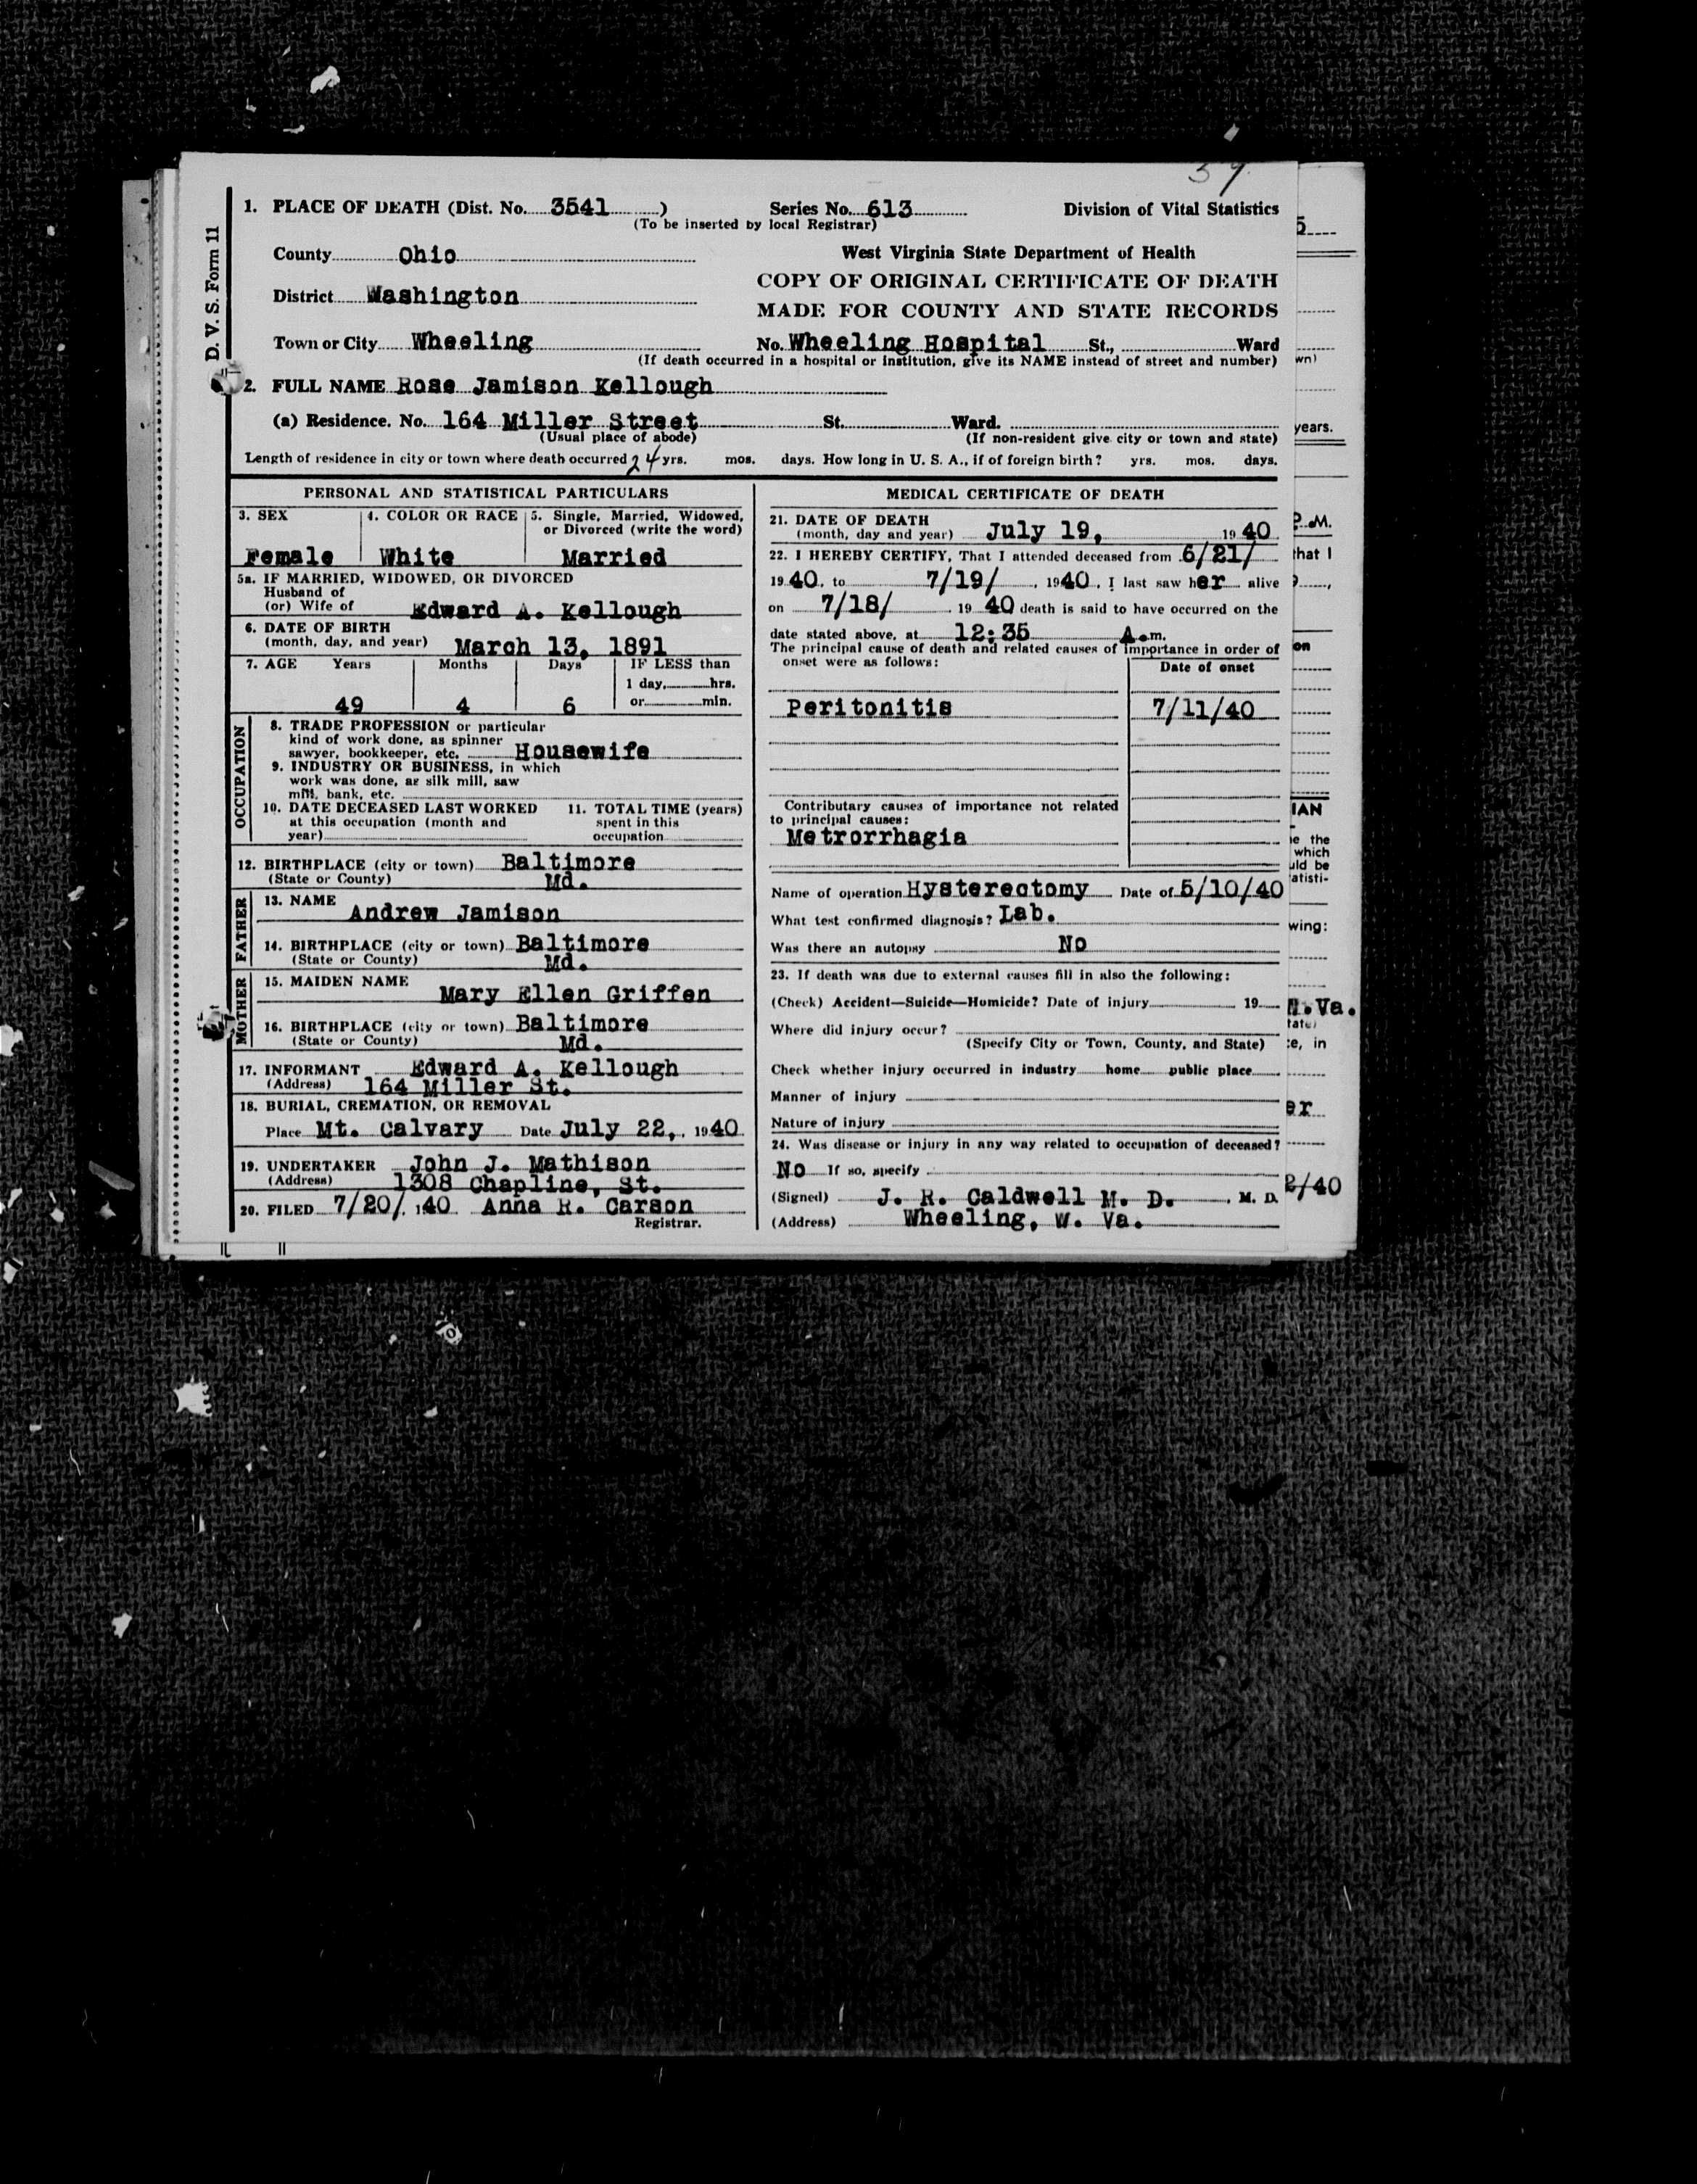 59
D. V. S. Form 11
1. PLACE OF DEATH (Dist. No. 3541 ) Series No. 613 Division of Vital Statistics
(To be inserted by local Registrar)
County Ohio West Virginia State Department of Health
COPY OF ORIGINAL CERTIFICATE OF DEATH
District Washington
MADE FOR COUNTY AND STATE RECORDS
Town or City Wheeling No. Wheeling Hospital St., Ward
(If death occurred in a hospital or institution, give its NAME instead of street and number)
2. FULL NAME Rose Jamison Kellough
(a) Residence. No. 164 Miller Street St. Ward.
(Usual place of abode) (If non-resident give city or town and state)
Length of residence in city or town where death occurred 24 yrs. mos. days. How long in U. S. A., if of foreign birth? yrs. mos. days.
PERSONAL AND STATISTICAL PARTICULARS
3. SEX 4. COLOR OR RACE 5. Single, Married, Widowed,
or Divorced (write the word)
Female White Married
5a. IF MARRIED, WIDOWED, OR DIVORCED
Husband of
(or) Wife of Edward A. Kellough
6. DATE OF BIRTH
(month, day, and year) March 13, 1891
7. AGE Years Months Days IF LESS than
1 day, hrs.
49 4 6 or min.
OCCUPATION
8. TRADE PROFESSION or particular
kind of work done, as spinner
sawyer, bookkeeper, etc. Housewife
9. INDUSTRY OR BUSINESS, in which
work was done, as silk mill, saw
mill, bank, etc.
10. DATE DECEASED LAST WORKED 11. TOTAL TIME (years)
at this occupation (month and spent in this
year) occupation
12. BIRTHPLACE (city or town) Baltimore
(State or County) Md.
FATHER
13. NAME
Andrew Jamison
14. BIRTHPLACE (city or town) Baltimore
(State or County) Md.
MOTHER
15. MAIDEN NAME
Mary Ellen Griffen
16. BIRTHPLACE (city or town) Baltimore
(State or County) Md.
17. INFORMANT Edward A. Kellough
(Address) 164 Miller St.
18. BURIAL, CREMATION, OR REMOVAL
Place Mt. Calvary Date July 22, 1940
19. UNDERTAKER John J. Mathison
(Address) 1308 Chapline, St.
20. FILED 7/20/, 1940 Anna R. Carson
Registrar.
MEDICAL CERTIFICATE OF DEATH
21. DATE OF DEATH
(month, day and year) July 19, 1940
22. I HEREBY CERTIFY, That I attended deceased from 6/21/
1940, to 7/19/, 1940. I last saw her alive
on 7/18/, 1940 death is said to have occurred on the
date stated above, at 12:35 A.m.
The principal cause of death and related causes of importance in order of
onset were as follows: Date of onset
Peritonitis 7/11/40
Contributary causes of importance not related
to principal causes:
Metrorrhagia
Name of operation Hysterectomy Date of 5/10/40
What test confirmed diagnosis? Lab.
Was there an autopsy No
23. If death was due to external causes fill in also the following:
(Check) Accident—Suicide—Homicide? Date of injury 19
Where did injury occur?
(Specify City or Town, County, and State)
Check whether injury occurred in industry home public place
Manner of injury
Nature of injury
24. Was disease or injury in any way related to occupation of deceased?
No If so, specify
(Signed) J. R. Caldwell M. D. , M. D.
(Address) Wheeling, W. Va.
5
wn)
years.
P.M.
that I
on
IAN
e the
which
uld be
atisti-
wing:
W.Va.
tate)
ce, in
er
2/40